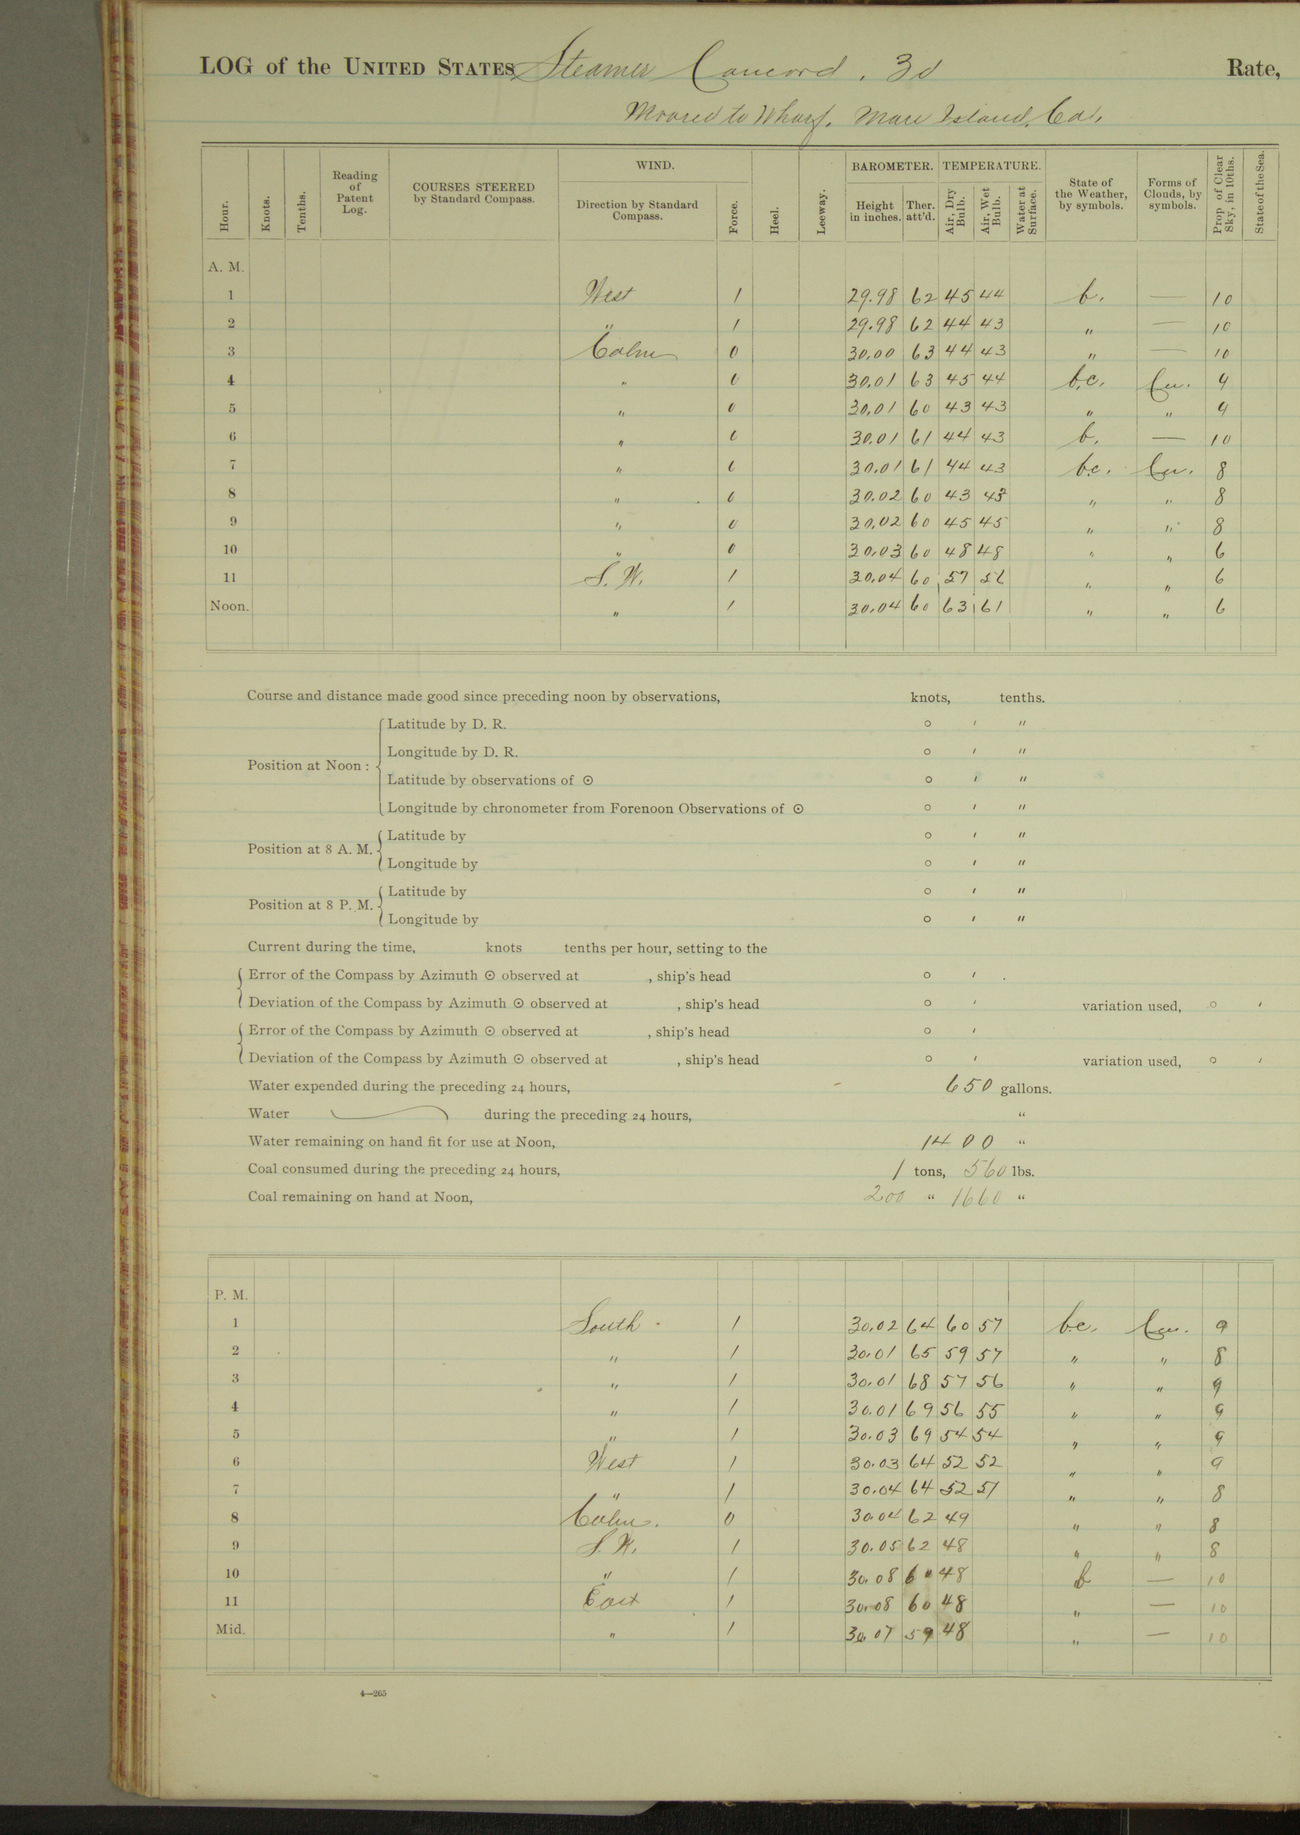 LOG of the UNITED STATES Steamer Concord, 3d Rate,
Moored to Wharf, Mare Island, Cal,
Hour. Knots. Tenths. Reading of Patent Log. COURSES STEERED by Standard Compass. WIND. Direction by Standard Compass. Force. Heel. Leeway. BAROMETER. Height in inches. Ther. att'd. TEMPERATURE. Air, Dry Bulb. Air, Wet Bulb. Water at Surface. State of the Weather, by symbols. Forms of Clouds, by symbols. Prop of Clear Sky, in 10ths. State of the Sea.
A. M.
1 West 1 29.98 62 45 44 b. — 10
2 " 1 29.98 62 44 43 " — 10
3 Calm 0 30.00 63 44 43 " — 10
4 " 0 30.01 63 45 44 b.c. Cu. 9
5 " 0 30.01 60 43 43 " " 9
6 " 0 30.01 61 44 43 b. — 10
7 " 0 30.01 61 44 43 bc. Cu. 8
8 " 0 30.02 60 43 43 " " 8
9 " 0 30.02 60 45 45 " " 8
10 " 0 30.03 60 48 48 " " 6
11 S.W. 1 30.04 60 57 56 " " 6
Noon. " 1 30.04 60 63 61 " " 6
Course and distance made good since preceding noon by observations, knots, tenths.
Position at Noon: Latitude by D. R. ° ′ ″
Longitude by D. R. ° ′ ″
Latitude by observations of ⊙ ° ′ ″
Longitude by chronometer from Forenoon Observations of ⊙ ° ′ ″
Position at 8 A. M. Latitude by ° ′ ″
Longitude by ° ′ ″
Position at 8 P. M. Latitude by ° ′ ″
Longitude by ° ′ ″
Current during the time, knots tenths per hour, setting to the
Error of the Compass by Azimuth ⊙ observed at , ship's head ° ′
Deviation of the Compass by Azimuth ⊙ observed at , ship's head ° ′ variation used, ° ′
Error of the Compass by Azimuth ⊙ observed at , ship's head ° ′
Deviation of the Compass by Azimuth ⊙ observed at , ship's head ° ′ variation used, ° ′
Water expended during the preceding 24 hours, 650 gallons.
Water during the preceding 24 hours, "
Water remaining on hand fit for use at Noon, 1400 "
Coal consumed during the preceding 24 hours, 1 tons, 560 lbs.
Coal remaining on hand at Noon, 200 " 1660 "
P. M.
1 South 1 30.02 64 60 57 bc. Cu. 9
2 " 1 30.01 65 59 57 " " 8
3 " 1 30.01 68 57 56 " " 9
4 " 1 30.01 69 56 55 " " 9
5 " 1 30.03 69 54 54 " " 9
6 West 1 30.03 64 52 52 " " 9
7 " 1 30.04 64 52 51 " " 8
8 Calm. 0 30.04 62 49 " " 8
9 S.W. 1 30.05 62 48 " " 8
10 " 1 30.08 60 48 b — 10
11 East 1 30.08 60 48 " — 10
Mid. " 1 30.07 59 48 " — 10
4—265